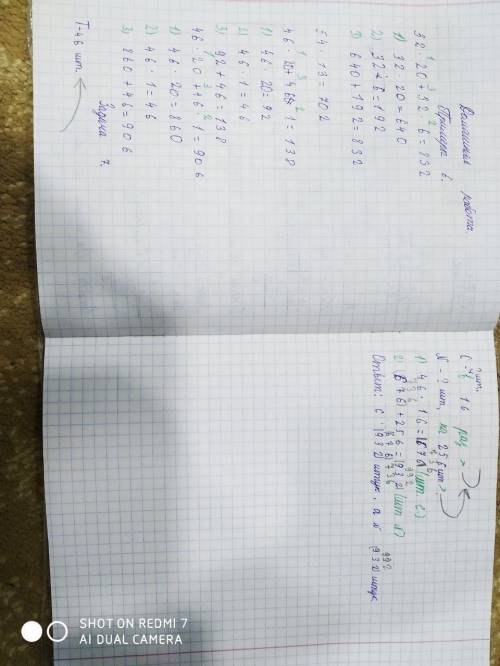 Домашняя работа.
Пример 6.
32 · 20 + 32 · 6 = 832
1) 32 · 20 = 640
2) 32 · 6 = 192
3) 640 + 192 = 832
54 · 13 = 702
1) 46 · 20 = 92
2) 46 · 1 = 46
3) 92 + 46 = 138
46 · 20 + 46 · 1 = 906
1) 46 · 20 = 860
2) 46 · 1 = 46
3) 860 + 46 = 906
Задача 7.
Т - 46 шт.
? шт.
16 раз >
N - ? шт, на 256 шт >.
1) 46 · 16 =
(шт. С)
+ 256 =
(шт. N)
Ответ: С
штук, а N
штук
SHOT ON REDMI 7
AI DUAL CAMERA